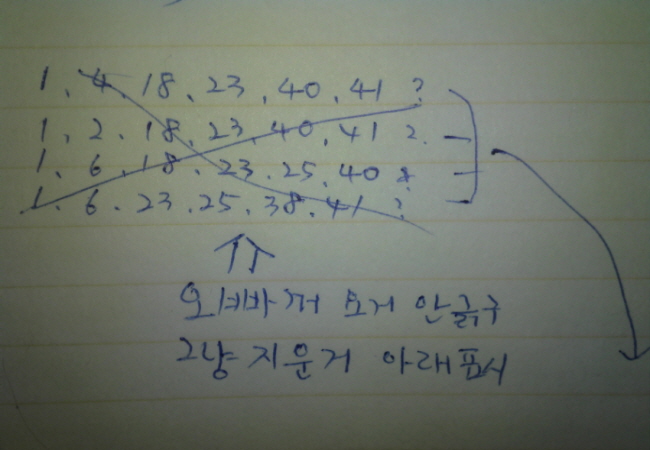 1. 4. 18. 23. 40. 41 ?
1. 2. 18. 23. 40. 41 ?
1. 6. 18. 23. 25. 40 ?
1. 6. 23. 25. 38. 41 ?
요거 안긁구
그냥 지운거 아래표시